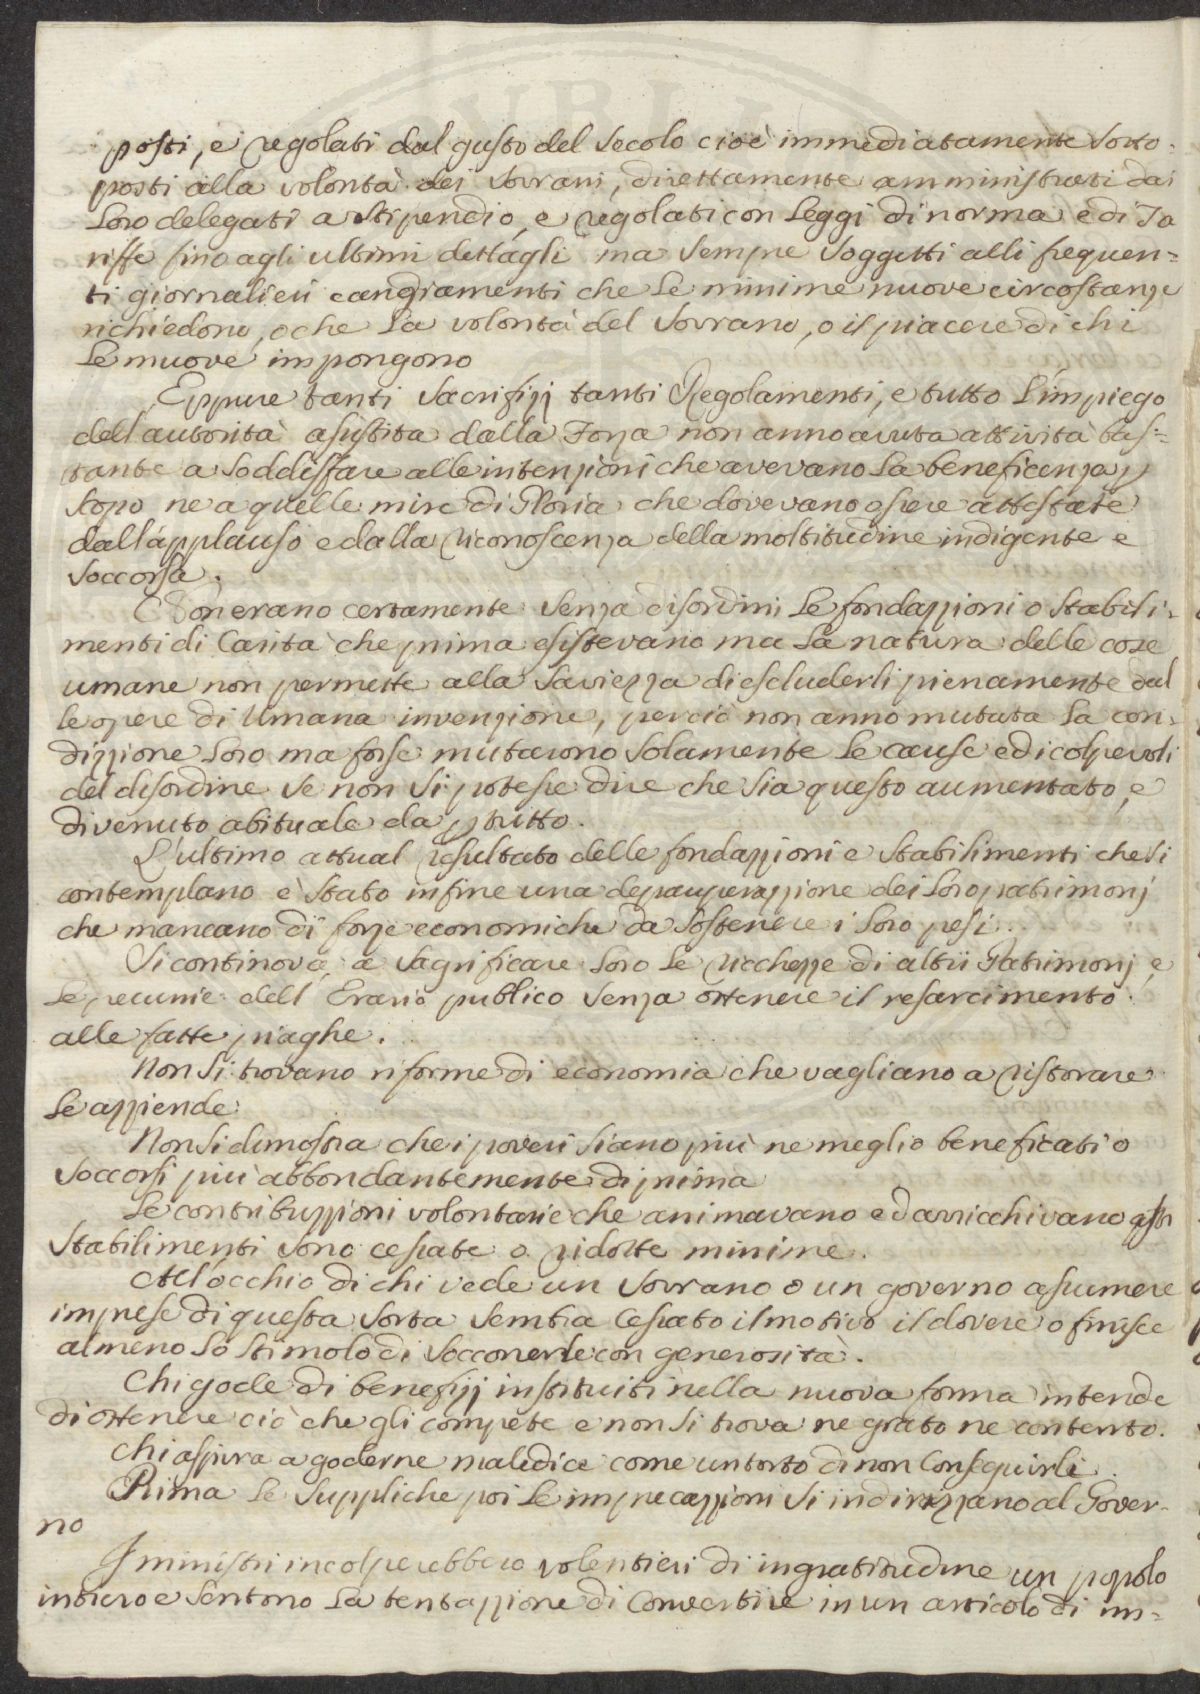 posti, e regolati dal gusto del secolo cioè immediatamente sotto-
posti alla volontà dei sovrani, direttamente amministrati dai
loro delegati a stipendio, e regolati con leggi di norma e di Ta
riffe fino agli ultimi dettagli ma sempre soggetti alli frequen=
ti giornalieri cangiamenti che le minime nuove circostanze
richiedono, o che la volontà del sovrano, o il piacere di chi
le muove impongono
Eppure tanti sacrifizj tanti Regolamenti, e tutto l'impiego
dell'autorità assistita dalla Forza non anno avuta attività bas=
tante a soddisfare alle intenzioni che avevano la beneficenza p
scopo ne a quelle mire di Gloria che dovevano essere attestate
dall'applauso e dalla riconoscenza della moltitudine indigente e
soccorsa.
Non erano certamente senza disordini le fondazzioni o stabili-
menti di Carità che prima esistevano ma la natura delle cose
umane non permette alla saviezza di escluderli pienamente dal
le opere di umana invenzione, perciò non anno mutata la con-
dizzione loro ma forse mutarono solamente le cause ed i colpevoli
del disordine se non si potesse dire che sia questo aumentato, e
divenuto abituale da p tutto.
L'ultimo attual resultato delle fondazzioni e stabilimenti che si
contemplano è stato infine una depauperazzione dei loro patrimonj
che mancano di forze economiche da sostenere i loro pesi.
Si continova a sagrificare loro le ricchezze di altri Patrimonj, e
le pecunie dell'Erario publico senza ottenere il resarcimento
alle fatte piaghe.
Non si trovano riforme di economia che vagliano a ristorare
le azziende
Non si dimostra che i poveri siano più ne meglio beneficati o
soccorsi più abbondantemente di prima
Le contribuzzioni volontarie che animavano ed arricchivano qsti
stabilimenti sono cessate o ridotte minime.
All'occhio di chi vede un sovrano o un governo assumere
imprese di questa sorta sembra cessato il motivo il dovere o finisce
almeno lo stimolo di soccorrerle con generosità.
Chi gode di benefizj instituiti nella nuova forma intende
di ottenere ciò che gli compete e non si trova ne grato ne contento.
Chi aspira a goderne maledice come un torto di non conseguirli.
Prima le suppliche poi le imprecazzioni si indirizzano al Gover-
no
I ministri incolperebbero volentieri di ingratitudine un popolo
intiero e sentono la tentazzione di convertire in un articolo di im-